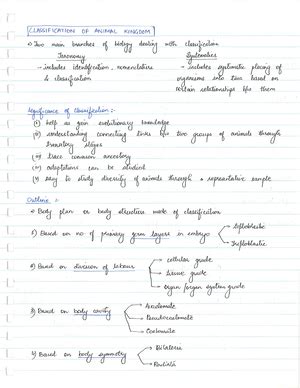 CLASSIFICATION OF ANIMAL KINGDOM
Two main branches of biology dealing with classification
Taxonomy Systematics
- includes identification, nomenclature - includes systematic placing of
& classification organisms into taxa based on
certain relationships b/w them
Significance of Classification :-
(i) help us gain evolutionary knowledge
(ii) understanding connecting links b/w two groups of animals through
transitory stages
(iii) trace common ancestry
(iv) adaptations can be studied
(v) easy to study diversity of animals through a representative sample
Outline :-
• Body plan or body structure mode of classification
1) Based on no of primary germ layers in embryo Diploblastic
Triploblastic
2) Based on division of labour cellular grade
tissue grade
organ/organ system grade
3) Based on body cavity Acoelomate
Pseudocoelomate
Coelomate
4) Based on body symmetry Bilateria
Radiata